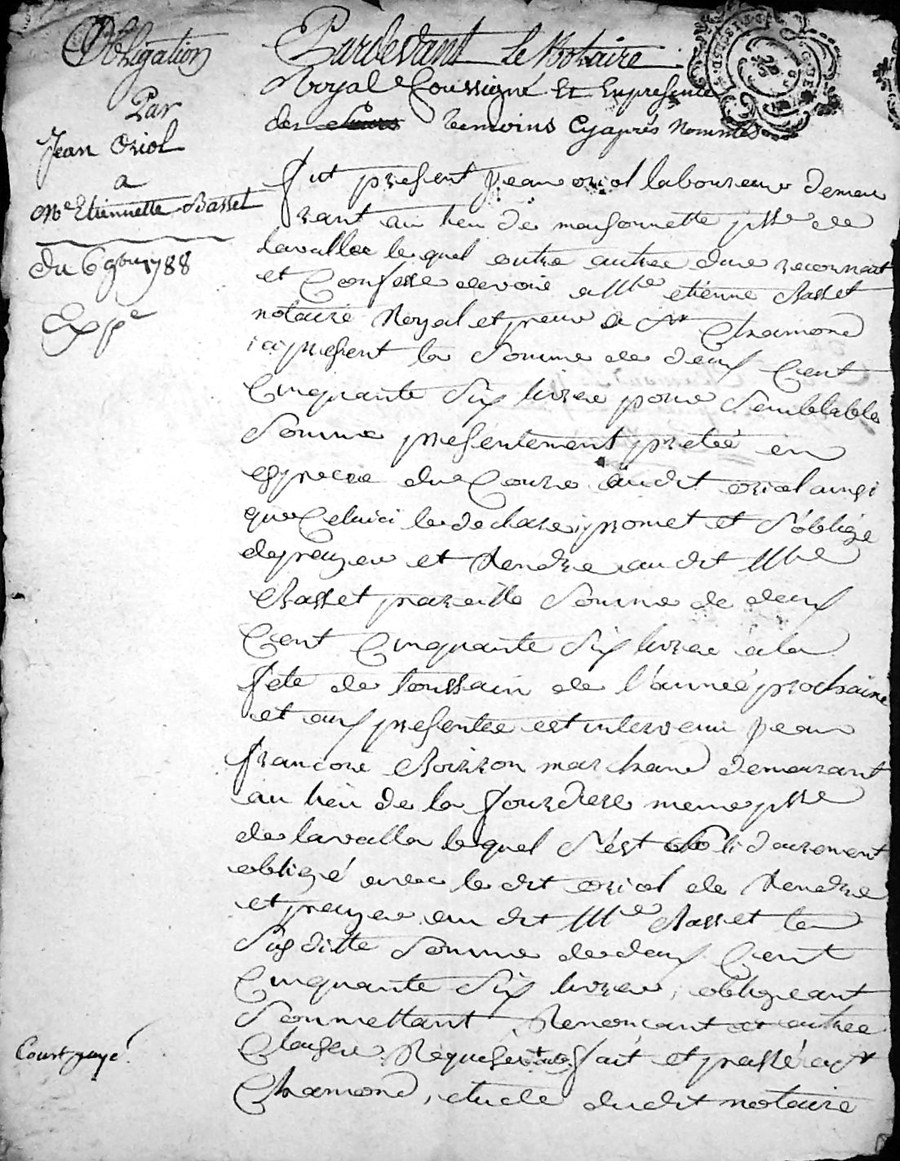 Obligation
Par
Jean Oriol
a
Me Etiennette Basset
du 6 1788
Expe
Pardevant Le Notaire
Royal Soussigné Et En presence
des temoins Cyaprés Nommés
fut present Jean oriol laboureur demeu
rant au lieu de maisonnette psse de
lavalla lequel entre autres dure reconnait
et Confesse devoir a Mre etienne Basset
notaire Royal et preur a St Chamond
icy present la Somme de deux Cent
Cinquante Six livres pour Semblable
Somme presentement pretée en
especes du Cours audit oriol ainsi
que Celuici le declare, promet et S'oblige
de payer et Rendre audit Mre
Basset pareille Somme de deux
Cent Cinquante Six livres a la
fete de toussain de l'année prochaine
et aux presentes est intervenu Jean
francois Boisson marchand demeurant
au lieu de la fourdiere meme psse
de lavalla lequel S'est Solidairement
obligé avec le dit oriol de Rendre
et payer au dit Mre Basset la
Susditte Somme de deux Cent
Cinquante Six livres, obligeant
Soumettant, Renoncant et autres
Clauses Requises fait et passé a St
Chamond, etude dudit notaire
Court payé